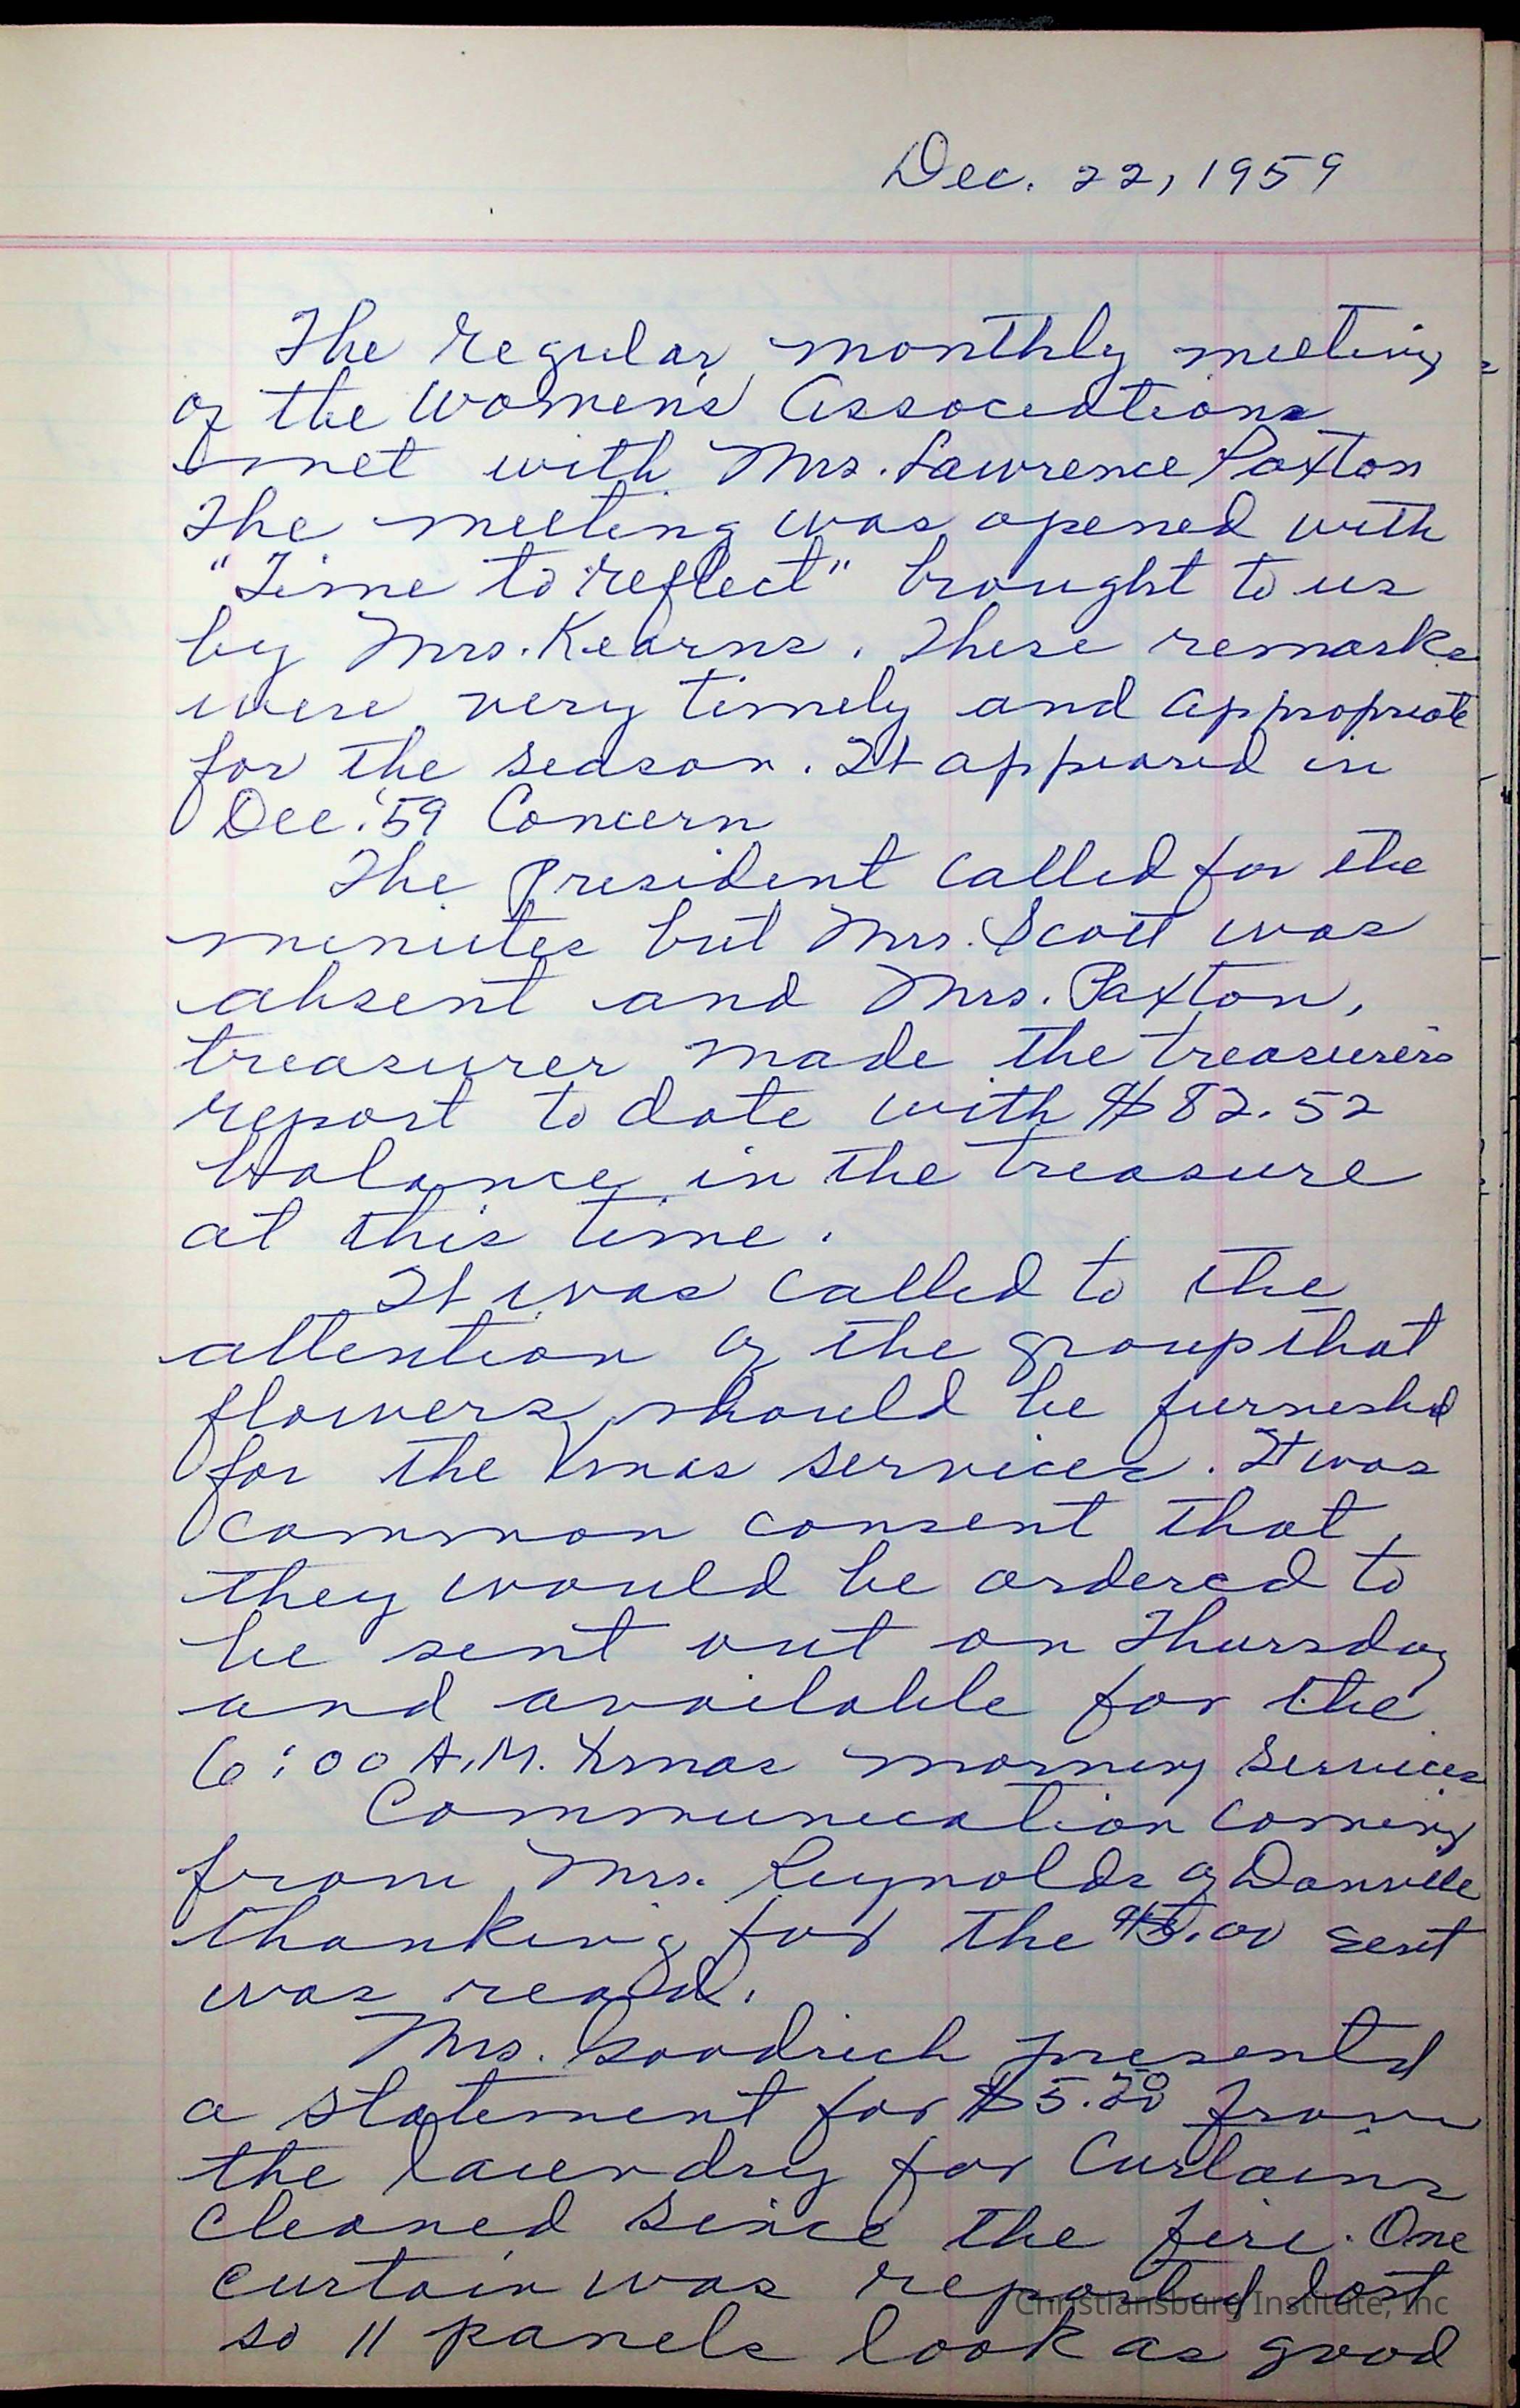 Dec. 22, 1959
The regular monthly meeting
of the Women's Associations
met with Mrs. Lawrence Paxton
The meeting was opened with
"Time to reflect" brought to us
by Mrs. Kearns. These remarks
were very timely and appropriate
for the season. It appeared in
Dec. '59 Concern
The President called for the
minutes but Mrs. Scott was
absent and Mrs. Paxton,
treasurer made the treasurers
report to date with $82.52
balance in the treasure
at this time.
It was called to the
attention of the group that
flowers should be furnished
for the Xmas services. It was
common consent that
they would be ordered to
be sent out on Thursday
and available for the
6:00 A.M. Xmas morning services
Communication coming
from Mrs. Reynolds of Danville
thanking for the $5.00 sent
was read.
Mrs. Goodrich presented
a statement for $5.20 from
the laundry for Curtains
cleaned since the fire. One
curtain was reported lost
so 11 panels look as good
Christiansburg Institute, Inc